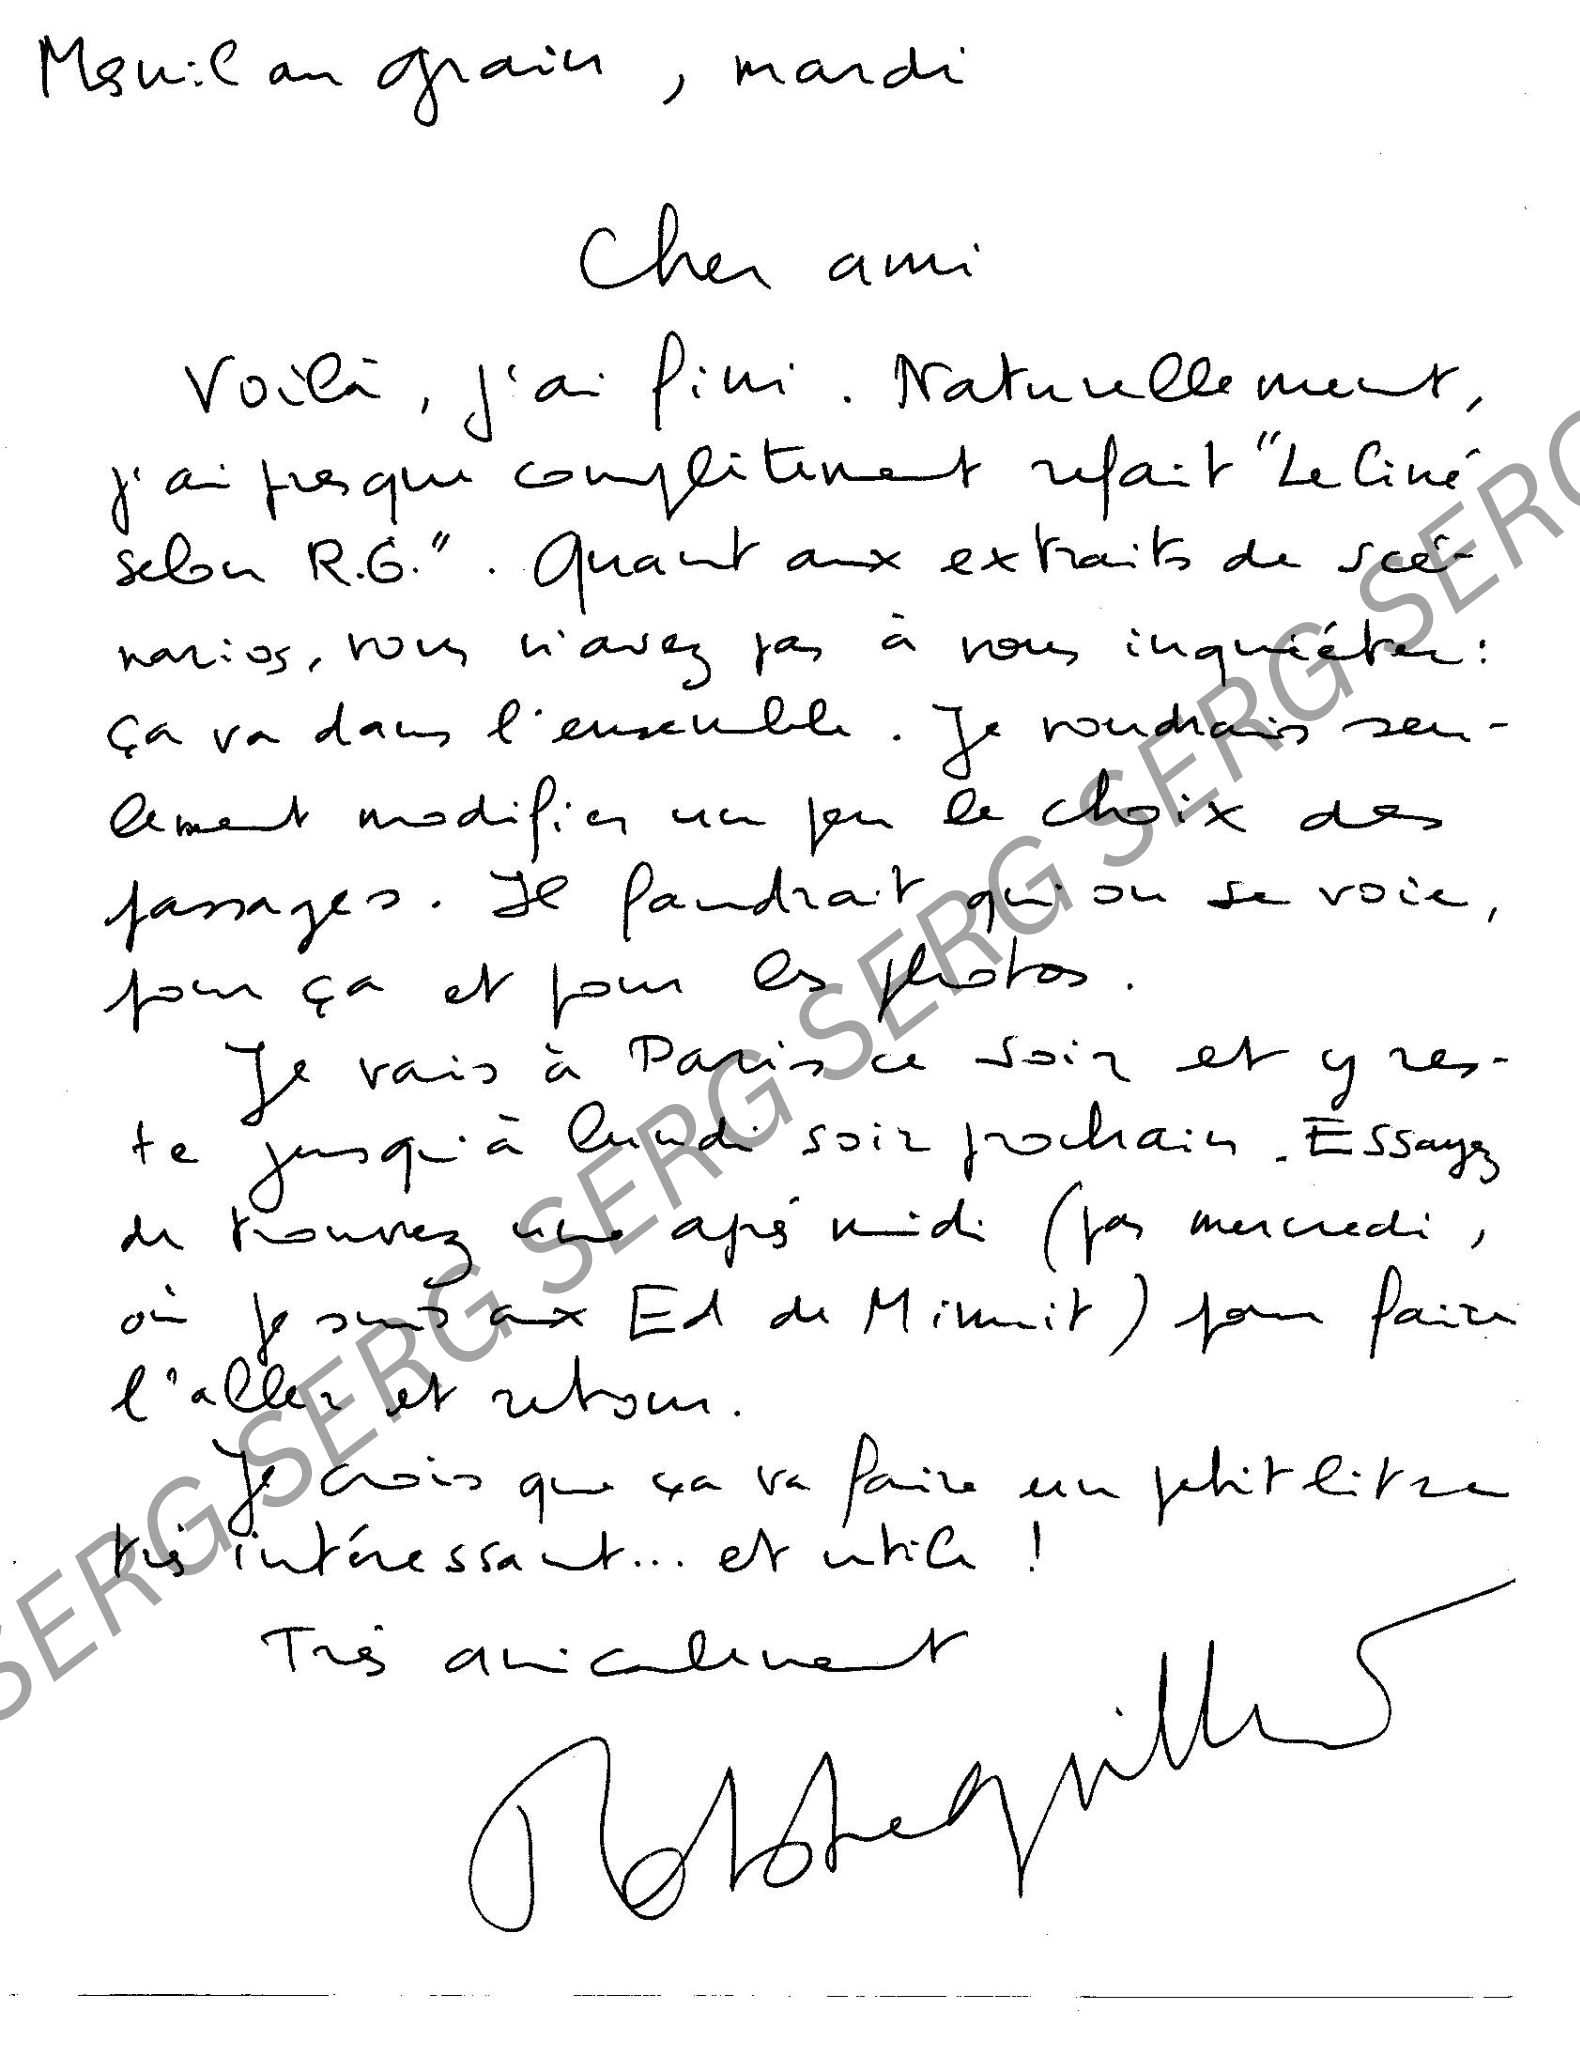 Mesnil au grain, mardi
Cher ami
Voilà, j'ai fini. Naturellement,
j'ai presque complètement refait "Le Ciné
selon R.G.". Quant aux extraits de scé-
narios, vous n'avez pas à vous inquiéter:
ça va dans l'ensemble. Je voudrais seu-
lement modifier un peu le choix des
passages. Il faudrait qu'on se voie,
pour ça et pour les photos.
Je vais à Paris ce soir et y res-
te jusqu'à lundi soir prochain. Essayez
de trouvez une après midi (pas mercredi,
où je suis aux Ed de Minuit) pour faire
l'aller et retour.
Je crois que ça va faire un petit litre
très intéressant... et utile !
Très amicalement
Robbe-Grillet
SERG SERG SERG SERG SERG SERG SERG SERG